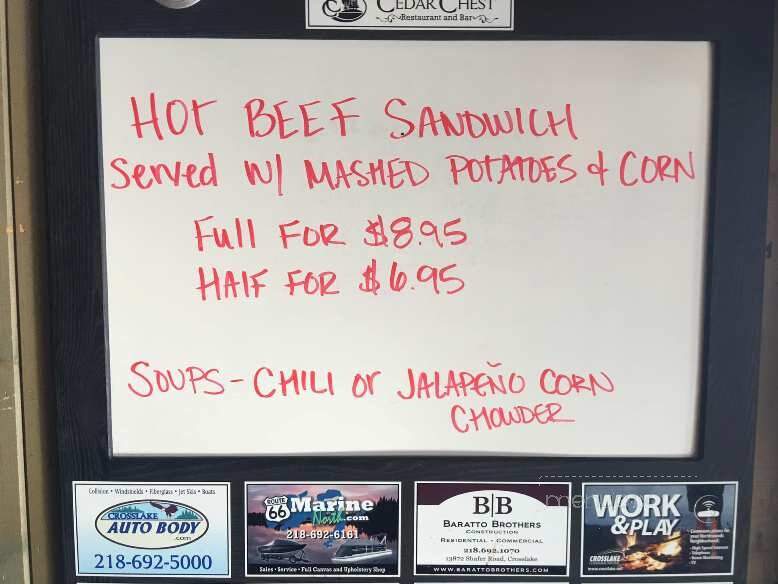 CEDAR CHEST
Restaurant and Bar
HOT BEEF SANDWICH
Served W/ MASHED POTATOES & CORN
Full FOR $8.95
HALF FOR $6.95
SOUPS - CHILI or JALAPEÑO CORN
CHOWDER
Collision • Windshields • Fiberglass • Jet Skis • Boats
CROSSLAKE
AUTO BODY
.com
218-692-5000
ROUTE
66 Marine
North.com
218-692-6161
Sales • Service • Full Canvas and Upholstery Shop
B|B
BARATTO BROTHERS
CONSTRUCTION
RESIDENTIAL • COMMERCIAL
218.692.1070
13872 Shafer Road, Crosslake
WWW.BARATTOBROTHERS.COM
WORK
&PLAY
CROSSLAKE